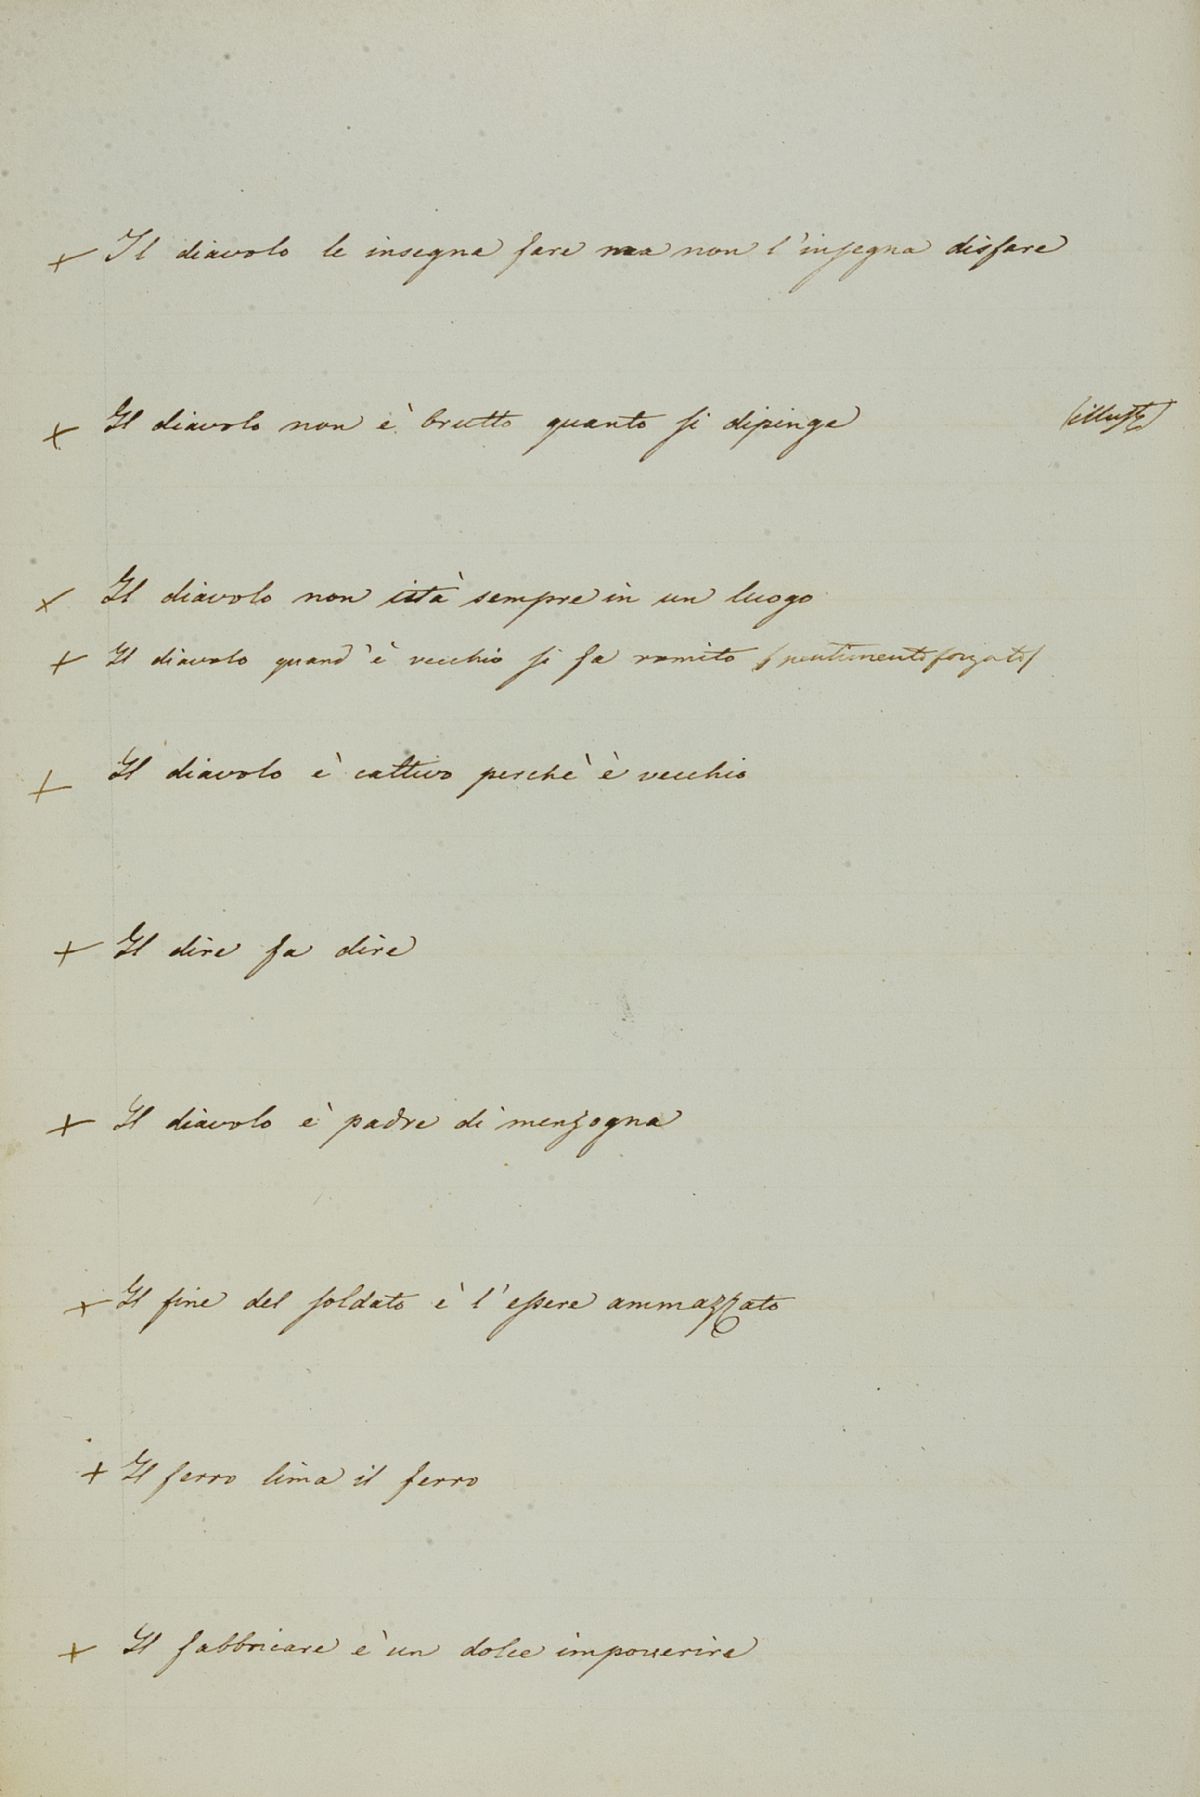 + Il diavolo le insegna fare ma non l'insegna disfare
+ Il diavolo non è brutto quanto si dipinge (illust)
+ Il diavolo non istà sempre in un luogo
+ Il diavolo quand'è vecchio si fa romito (pentimento forzato)
+ Il diavolo è cattivo perchè è vecchio
+ Il dire fa dire
+ Il diavolo è padre di menzogna
+ Il fine del soldato è l'essere ammazzato
+ Il ferro lima il ferro
+ Il fabbricare è un dolce impoverire